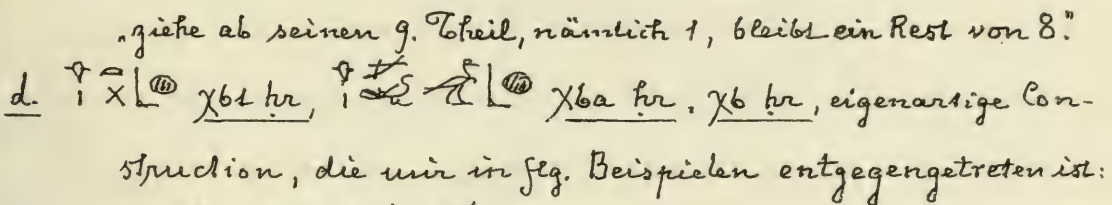 „ziehe ab seinen 9. Theil, nämlich 1, bleibt ein Rest von 8.“
d. χbt ḥr, χba ḥr, χb ḥr, eigenartige Con-
struction, die mir in flg. Beispielen entgegengetreten ist: